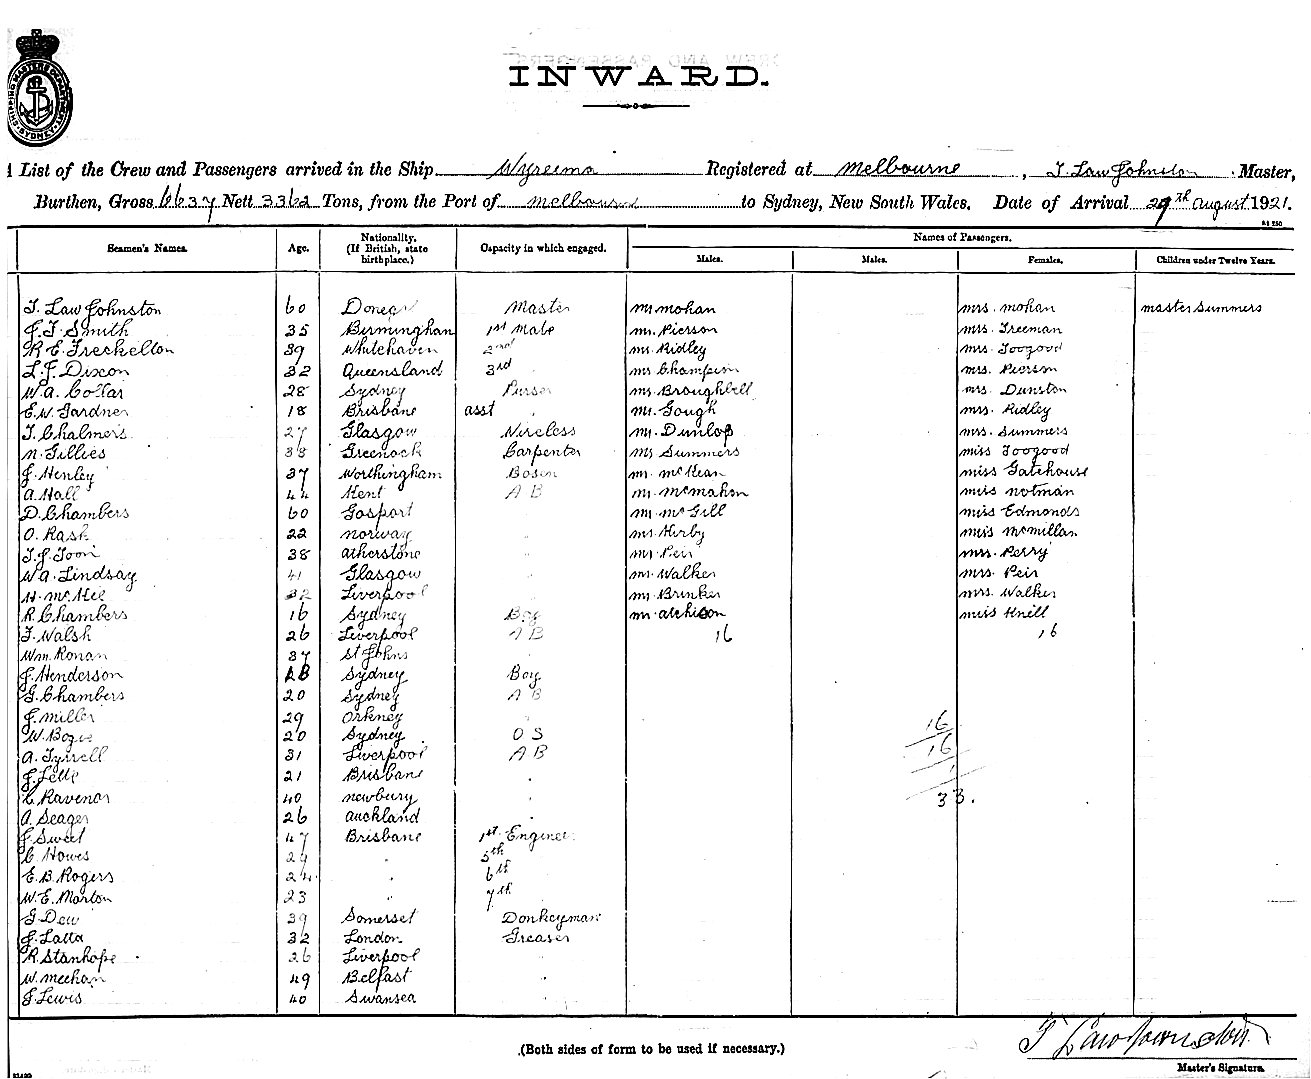 SHIPPING MASTER'S DEPARTMENT SYDNEY
INWARD.
List of the Crew and Passengers arrived in the Ship Wyreema Registered at Melbourne, T. Law Johnston Master,
Burthen, Gross 6637 Nett 3362 Tons, from the Port of Melbourne to Sydney, New South Wales. Date of Arrival 29th August 1921.
Seamen's Names. Age. Nationality. (If British, state birthplace.) Capacity in which engaged. Names of Passengers.
Males. Males. Females. Children under Twelve Years.
T. Law Johnston 60 Donegal Master Mr Mohan Mrs. Mohan Master Summers
J. T. Smith 35 Birmingham 1st Mate Mr. Pierson Mrs. Freeman
R E. Freckelton 39 Whitehaven 2nd Mr. Ridley Mrs. Toogood
L. J. Dixon 32 Queensland 3rd Mr Champion Mrs. Pierson
W. A. Collar 28 Sydney Purser Mr. Broughbell Mrs. Dunston
E. W. Gardner 18 Brisbane asst " Mr. Gough Mrs. Ridley
T. Chalmers 27 Glasgow Wireless Mr. Dunlop Mrs. Summers
N. Gillies 38 Greenock Carpenter Mr Summers Miss Toogood
J. Henley 37 Worthingham Bosen Mr. McKean Miss Gatehouse
A. Hall 44 Kent A B Mr. McMahon Miss Notman
D. Chambers 60 Gosport " Mr. McGill Miss Edmonds
O. Rask 22 Norway " Mr. Kirby Miss McMillan
T. J. Toon 38 Atherstone " Mr Peir Mrs. Perry
W. A. Lindsay 41 Glasgow " Mr. Walker Mrs. Peir
H. McKie 32 Liverpool " Mr Brinker Mrs. Walker
R. Chambers 16 Sydney Boy Mr. Atchison Miss Knill
T. Walsh 26 Liverpool A B 16 16
Wm. Ronan 37 St Johns "
J. Henderson 18 Sydney Boy
G. Chambers 20 Sydney A B
J. Miller 29 Orkney " 16
W. 20 Sydney O S 16
A. Tyrrell 31 Liverpool A B 1
J. 21 Brisbane "
C. Ravenor 40 Newbury " 33.
A. Seager 26 Auckland "
J. Sweet 47 Brisbane 1st Engineer
C. Howes 29 " 5th
E. B. Rogers 24 " 6th
W. E. Marton 23 " 7th
G. Dew 39 Somerset Donkeyman
J. Latta 32 London Greaser
R. Stanhope 26 Liverpool "
W. Meehan 49 Belfast "
J. Lewis 40 Swansea "
(Both sides of form to be used if necessary.)
T Law Johnston
Master's Signature.